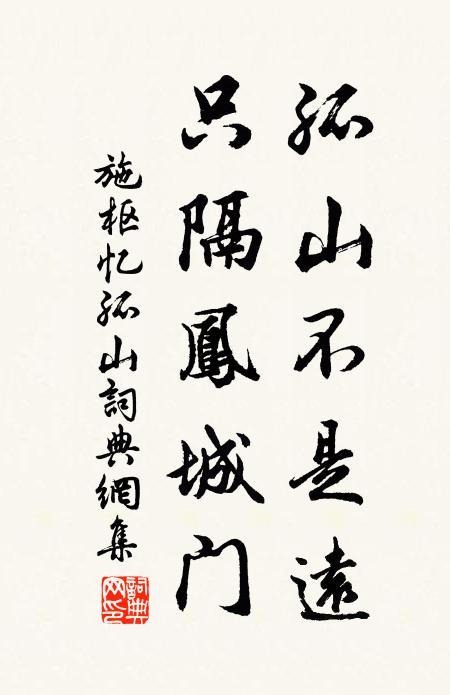 孤山不是遠
只隔鳳城门
施枢忆孤山詞典網集
詞典网印